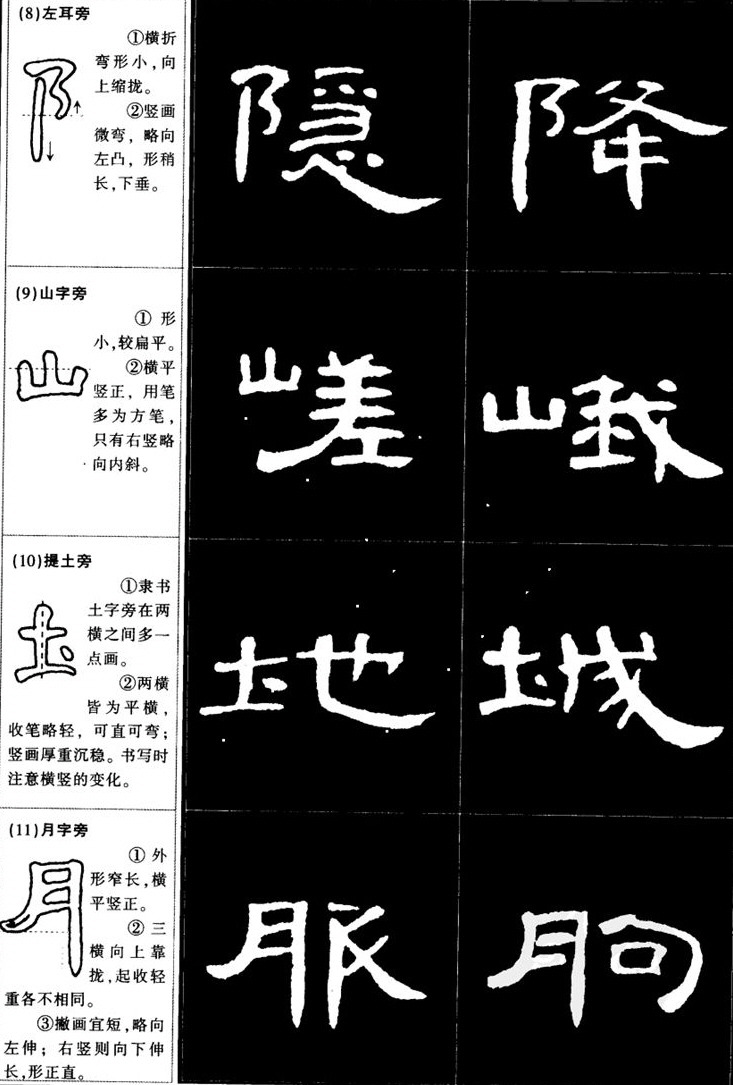 (8)左耳旁
①横折
弯形小,向
上缩拢。
②竖画
微弯，略向
左凸，形稍
长,下垂。
阝
隐 降
(9)山字旁
① 形
小,较扁平。
②横平
竖正，用笔
多为方笔，
只有右竖略
向内斜。
山
嵯 峨
(10)提土旁
①隶书
土字旁在两
横之间多一
点画。
②两横
皆为平横，
收笔略轻，可直可弯；
竖画厚重沉稳。书写时
注意横竖的变化。
地 城
(11)月字旁
① 外
形窄长,横
平竖正。
② 三
横向上靠
拢,起收轻
重各不相同。
③撇画宜短,略向
左伸；右竖则向下伸
长,形正直。
月
服 朐